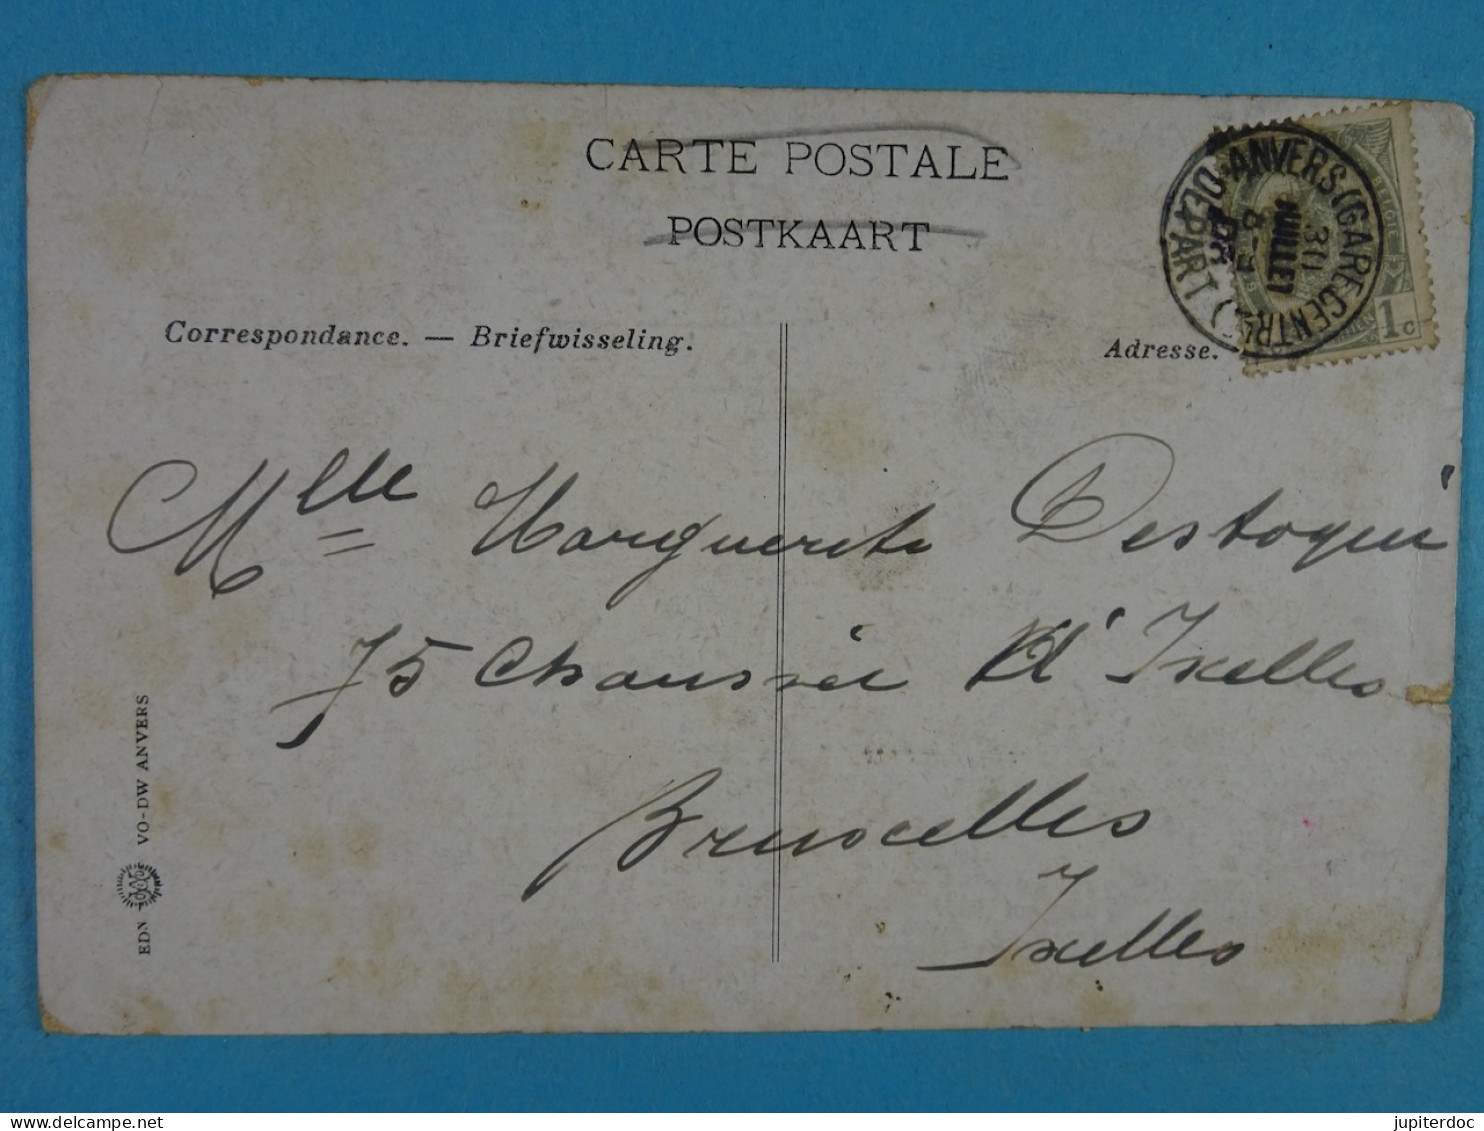 CARTE POSTALE
POSTKAART
Correspondance. — Briefwisseling.
Adresse.
ANVERS (GARE CENTR
DÉPART
30
JUILLET
8-9
1c
Mlle Marguerite Destoqui
75 Chaussée d'Ixelles
Bruxelles
Ixelles
EDN VO-DW ANVERS
jupiterdoc